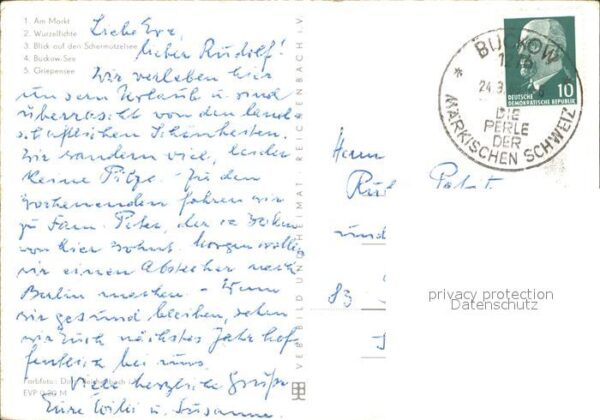 1. Am Markt
2. Wurzelfichte
3. Blick auf den Schermützelsee
4. Buckow-See
5. Griepensee
Liebe Eva,
lieber Rudolf!
Wir verleben hier
unsern Urlaub u. sind
überrascht von den land-
schaftlichen Schönheiten.
Wir wandern viel, leider
keine Pilze. Zu den
Wochenenden fahren wir
zu Fam. Peter, der 12
von hier wohnt. Morgen wollen
wir einen Abstecher nach
Berlin machen. - Wenn
wir gesund bleiben, sehen
wir Euch nächstes Jahr hof-
fentlich bei uns.
Viele herzliche Grüße
Eure Willi u. Susanne
Farbfoto:
EVP 0,20 M
VERBILD UND HEIMAT REICHENBACH i.V.
BUCKOW
24.3.
DIE
PERLE
DER
MÄRKISCHEN SCHWEIZ
10
DEUTSCHE
DEMOKRATISCHE REPUBLIK
Herrn
und
83
privacy protection
Datenschutz